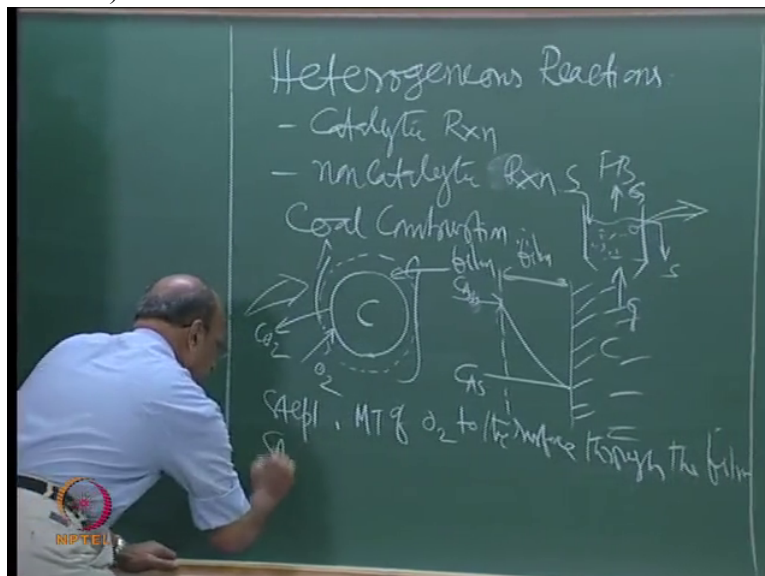 Heterogeneous Reactions
- Catalytic Rxn
- non Catalytic Rxn
S FB G
S
G
Coal Combustion
film
film
C
CO2
O2
CAb
CAS
C
Step1. MT of O2 to the surface through the film
St
NPTEL